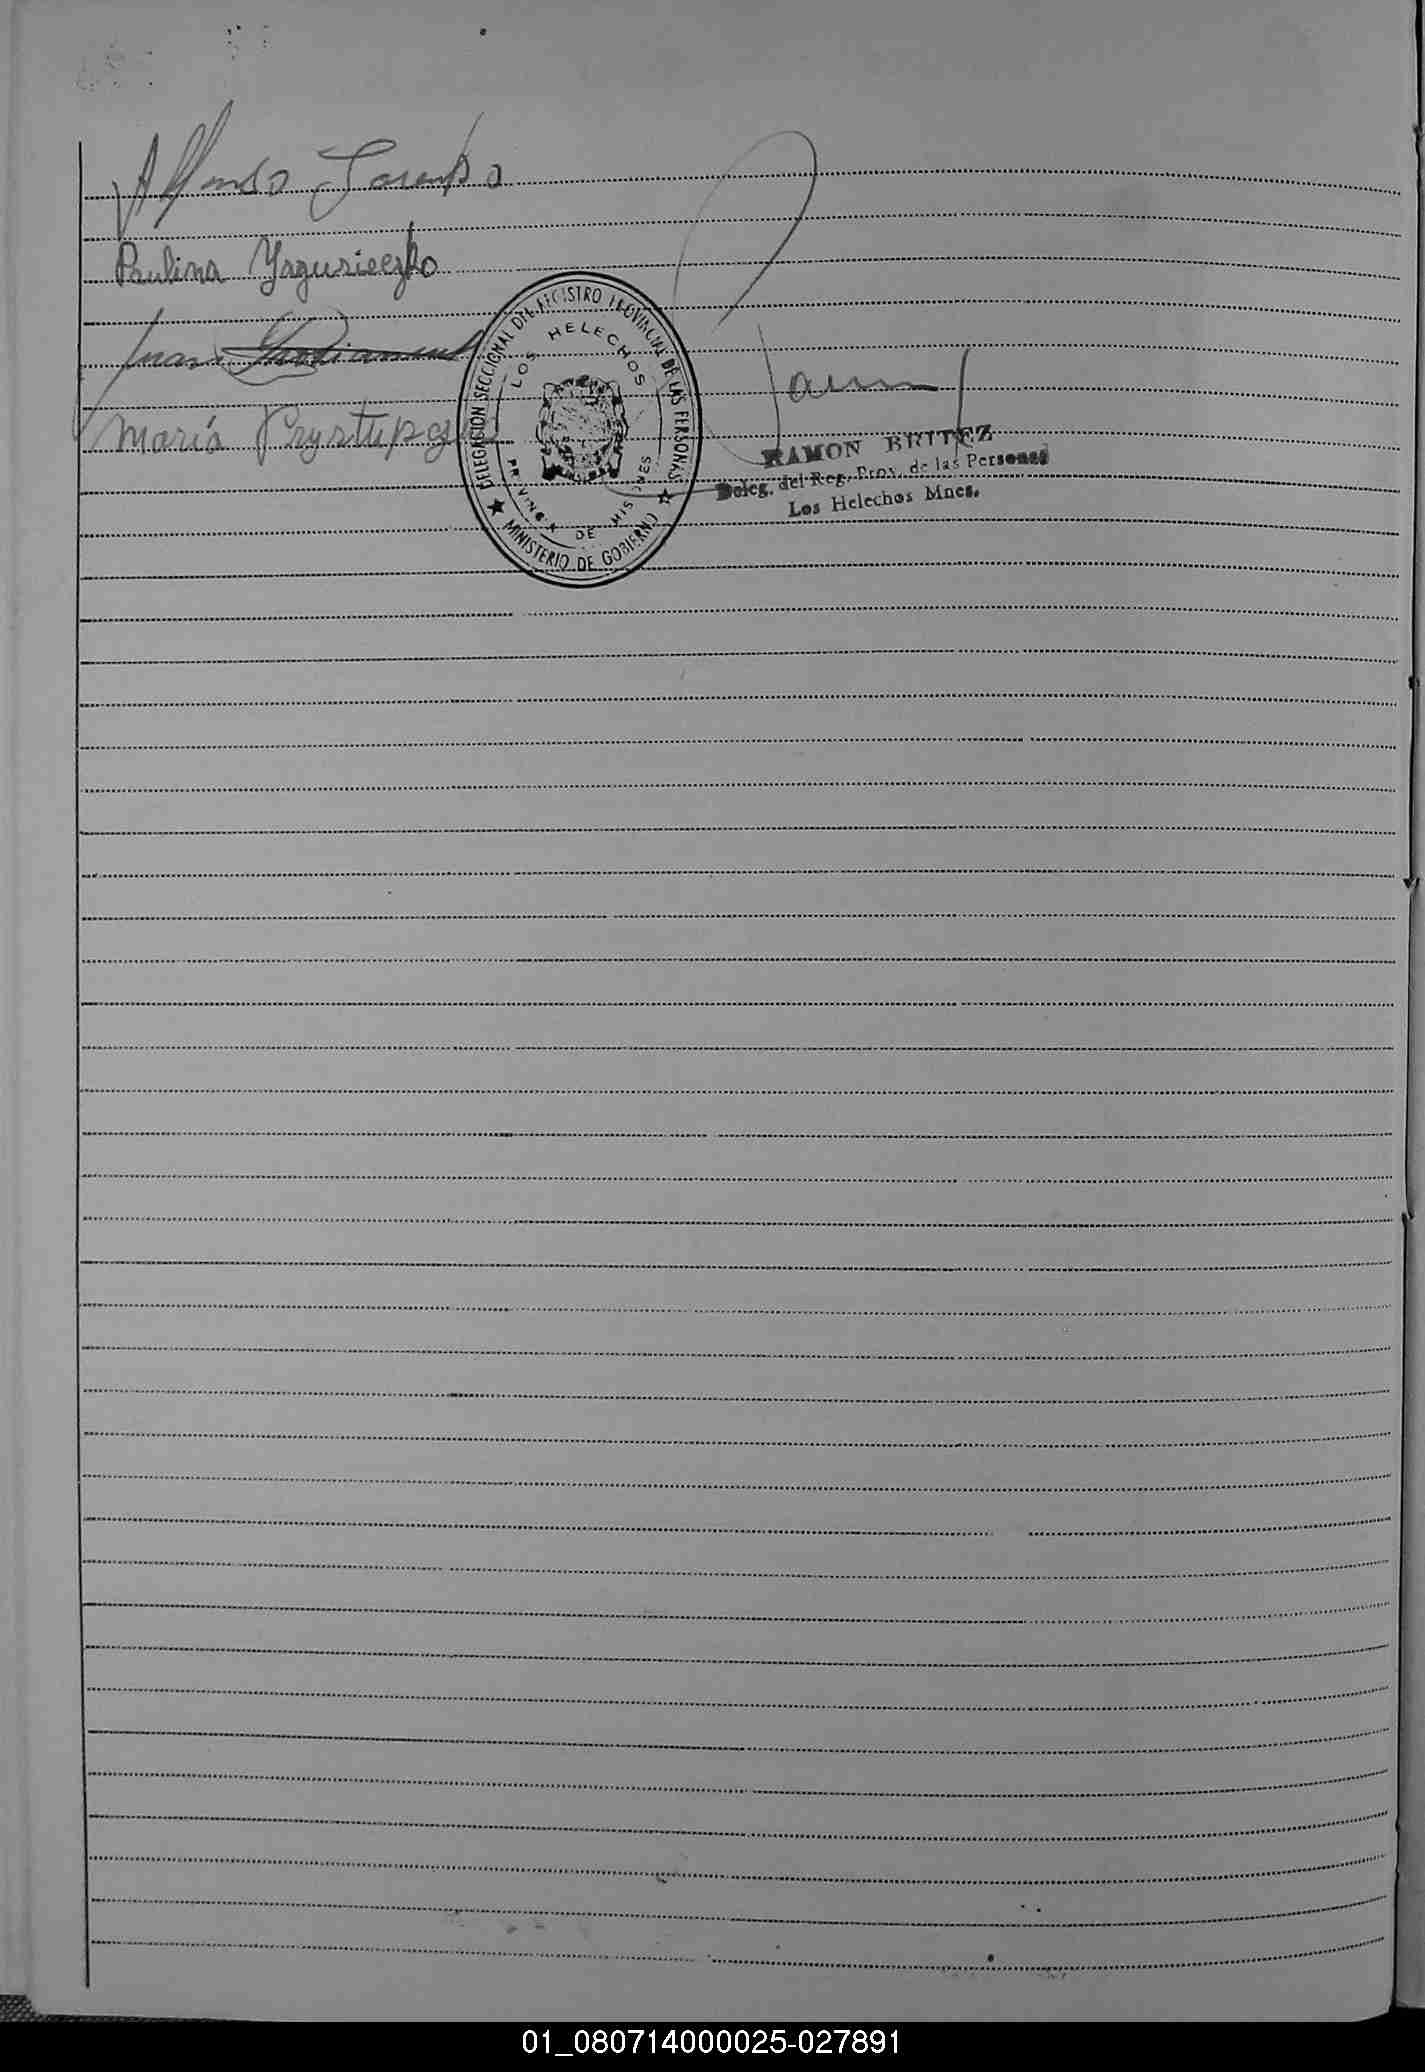 Alfonso
Paulina
Juan
María Prystupa
DELEGACION SECCIONAL DEL REGISTRO PROVINCIAL DE LAS PERSONAS
LOS HELECHOS
PROVINCIA DE MISIONES
MINISTERIO DE GOBIERNO
RAMON BRITEZ
Deleg. del Reg. Prov. de las Personas
Los Helechos Mnes.
01_080714000025-027891